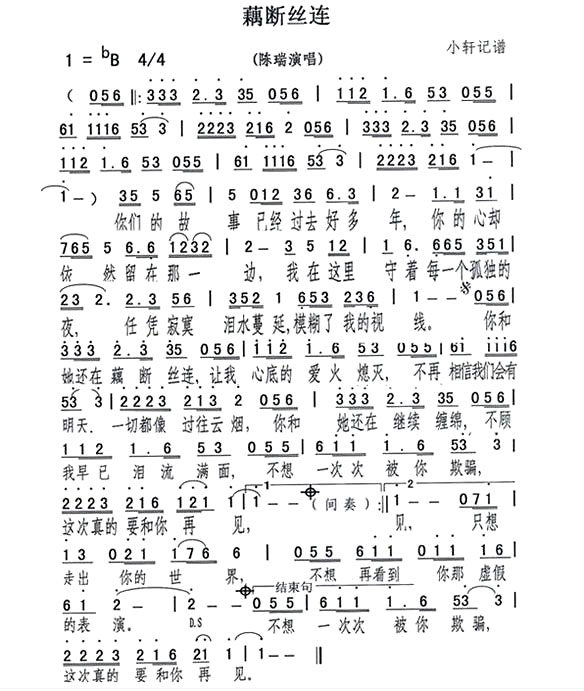 藕断丝连
小轩记谱
1 = bB 4/4 (陈瑞演唱)
( 056 ‖: 333 2.3 35 056 | 112 1.6 53 055 |
61 1116 53 3 | 2223 216 2 056 | 333 2.3 35 056 |
112 1.6 53 055 | 61 1116 53 3 | 2223 216 1 - |
1 - ) 35 5 65 | 5 012 36 6.3 | 2 - 1.1 31 |
你们的故 事已经过去好多 年,你的心却
765 5 6.6 1232 | 2 - 3 5 12 | 1 6. 665 351 |
依然留在那一 边,我在这里 守着每一个孤独的
23 2. 2.3 56 | 352 1 653 236 | 1 - - 056 |
夜, 任凭寂寞 泪水蔓延,模糊了我的视 线。 你和
333 2.3 35 056 | 112 1.6 53 055 | 61 1116
她还在藕断丝连,让我 心底的爱火熄灭, 不再相信我们会有
53 3 | 2223 213 2 056 | 333 2.3 35 056 |
明天.一切都像过往云烟,你和 她还在继续缠绵,不顾
112 1.6 53 055 | 611 1.6 53 3 |
我早已泪流满面, 不想一次次被你欺骗,
2223 216 121 1 | 1 - - - :‖ 1 - - 071 |
1
(间奏)
2
这次真的要和你再见, 见, 只想
13 021 176 | 055 611 011 16 |
走出你的世界, 不想再看到你那虚假
结束句
61 2 - | 2 - - 055 | 611 1.6 53 3 |
的表演。 D.S 不想一次次被你欺骗,
2223 216 21 1 | 1 - - ‖
这次真的要和你再见。